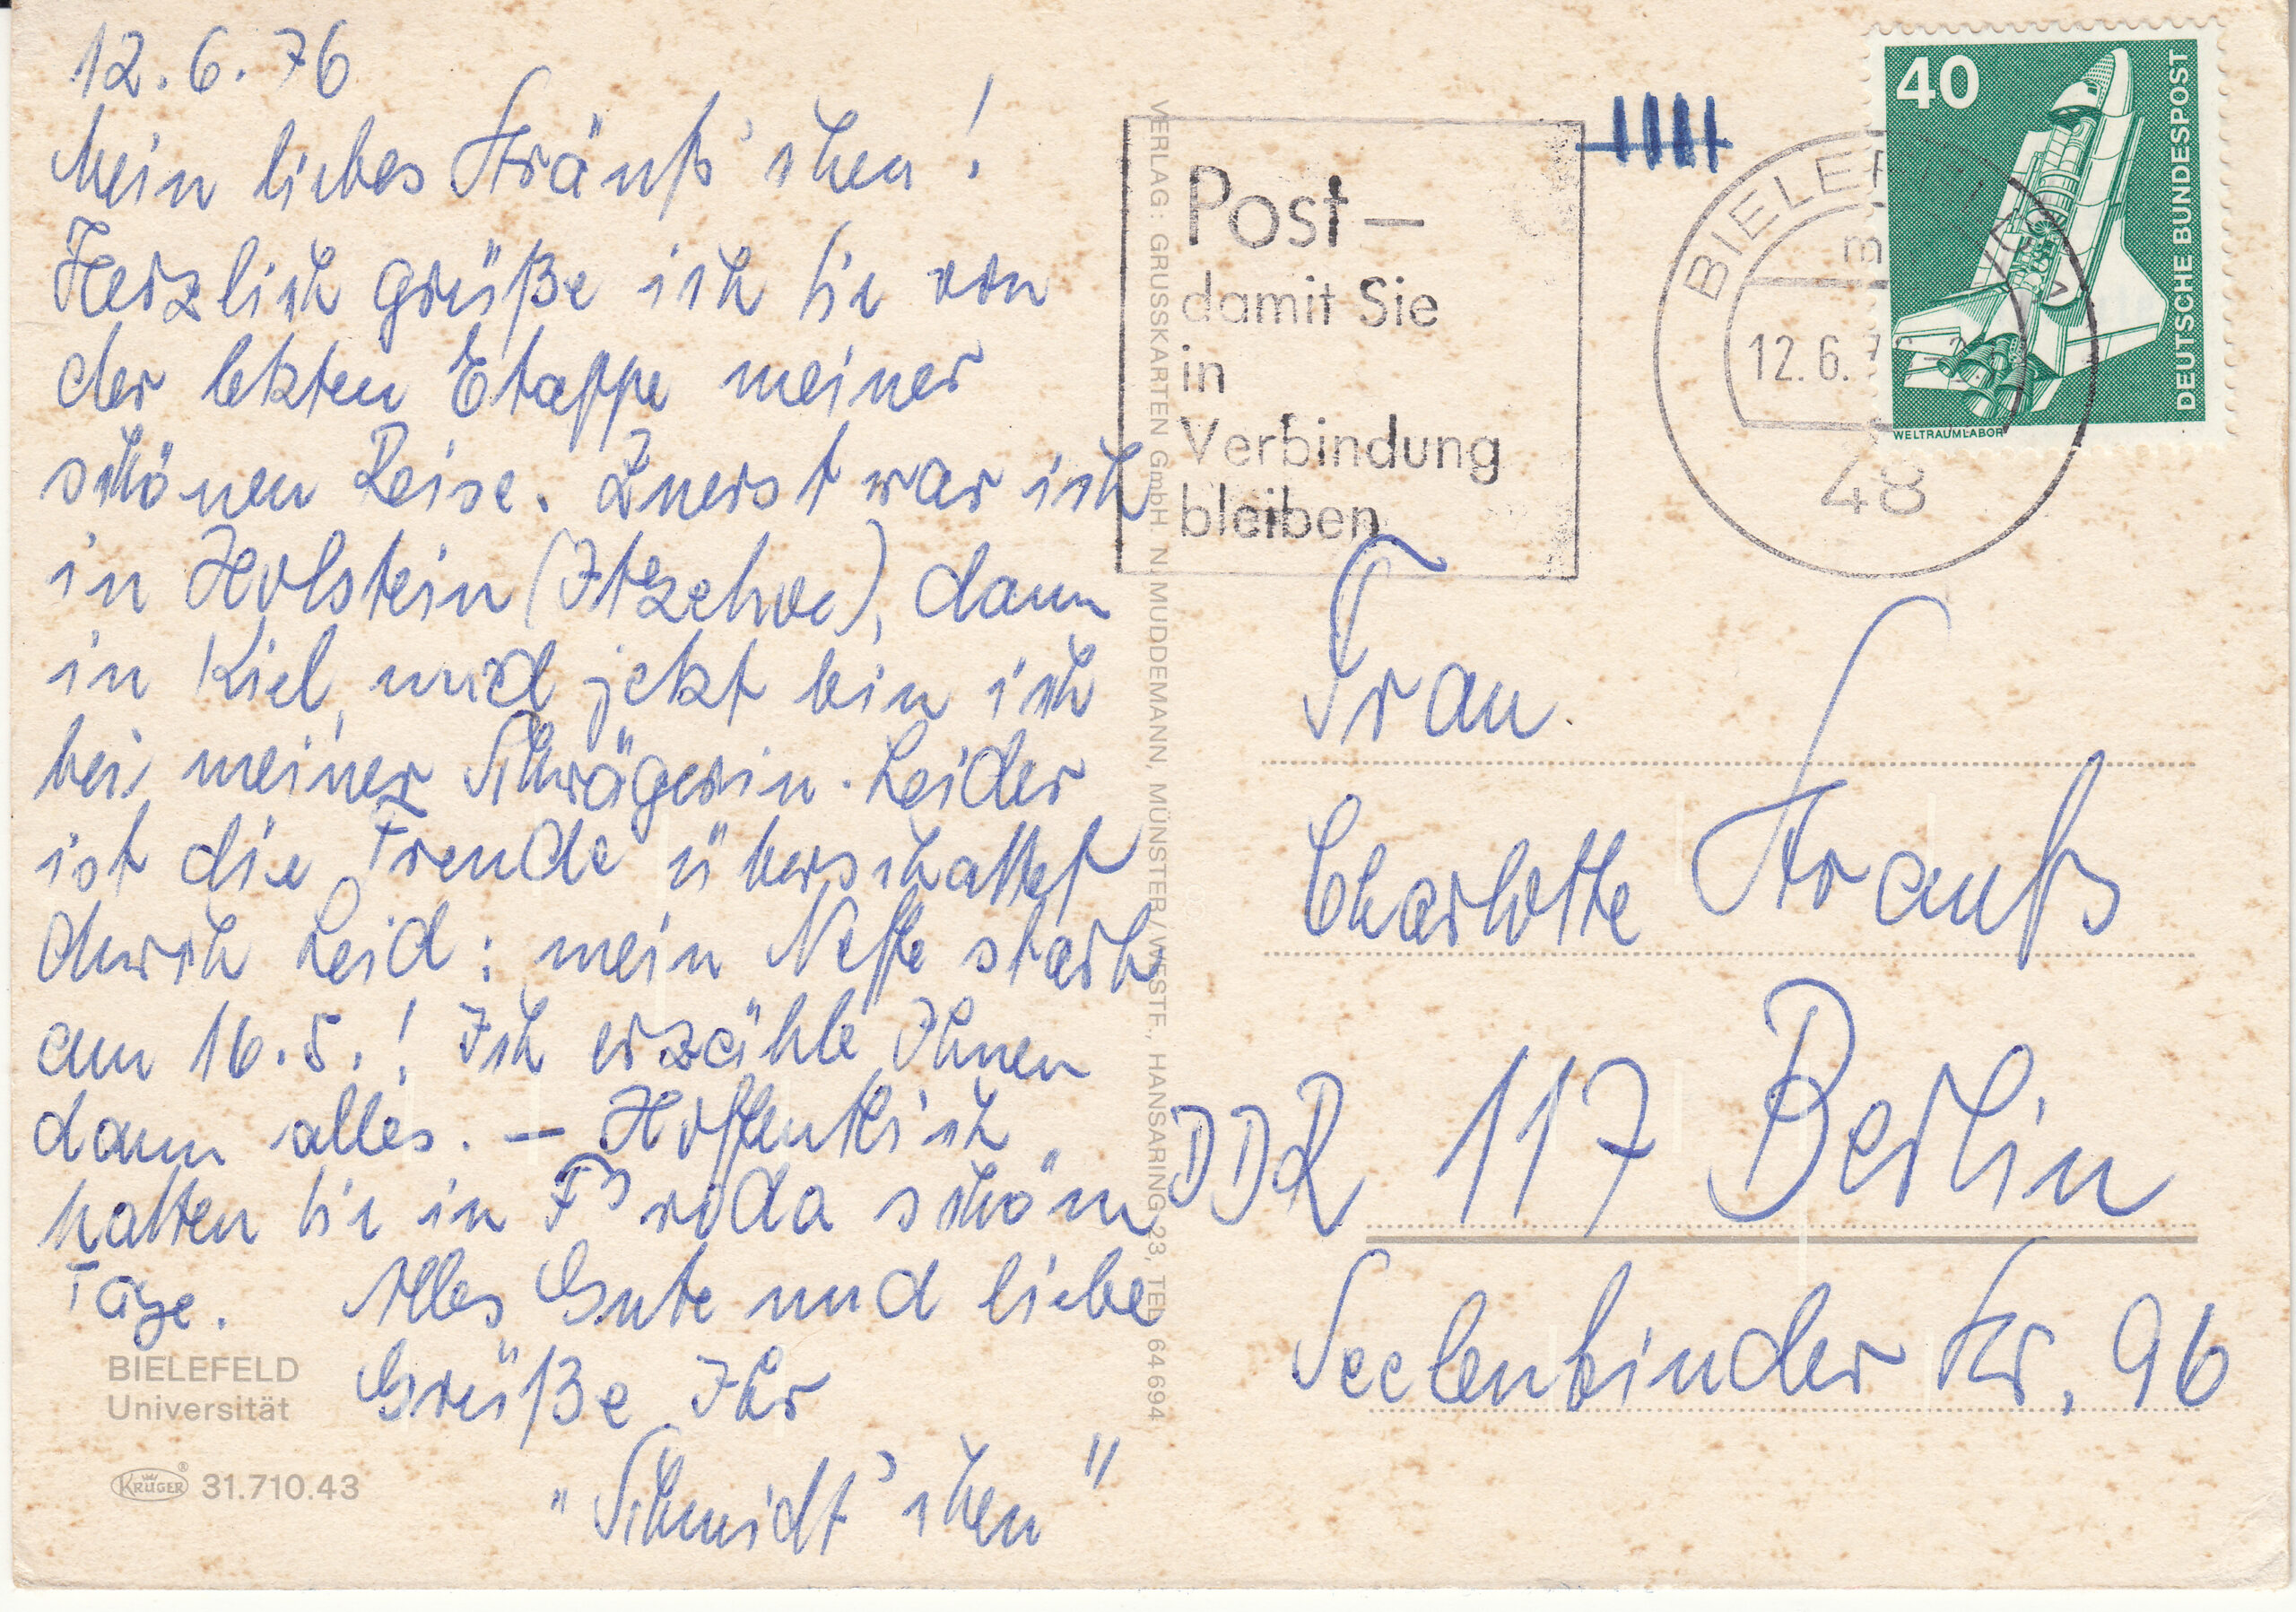 12.6.76
Mein liebes Sträuß'chen!
Herzlich grüße ich Sie von
der letzten Etappe meiner
schönen Reise. Zuerst war ich
in Holstein (Itzehoe), dann
in Kiel, und jetzt bin ich
bei meiner Schwägerin. Leider
ist die Freude überschattet
durch Leid: mein Neffe starb
am 16.5.! Ich erzähle Ihnen
dann alles. – Hoffentlich
hatten Sie in schöne
Tage. Alles Gute und liebe
Grüße Ihr
"Schmidt'chen"
BIELEFELD
Universität
KRÜGER® 31.710.43
VERLAG: GRUSSKARTEN GmbH. N. MUDDEMANN, MÜNSTER/WESTF., HANSARING 23, TEL. 64694
Post –
damit Sie
in
Verbindung
bleiben
BIELEFELD
12.6.7
48
40
DEUTSCHE BUNDESPOST
WELTRAUMLABOR
Frau
Charlotte Strauß
DDR 117 Berlin
Seelenbinder Str. 96